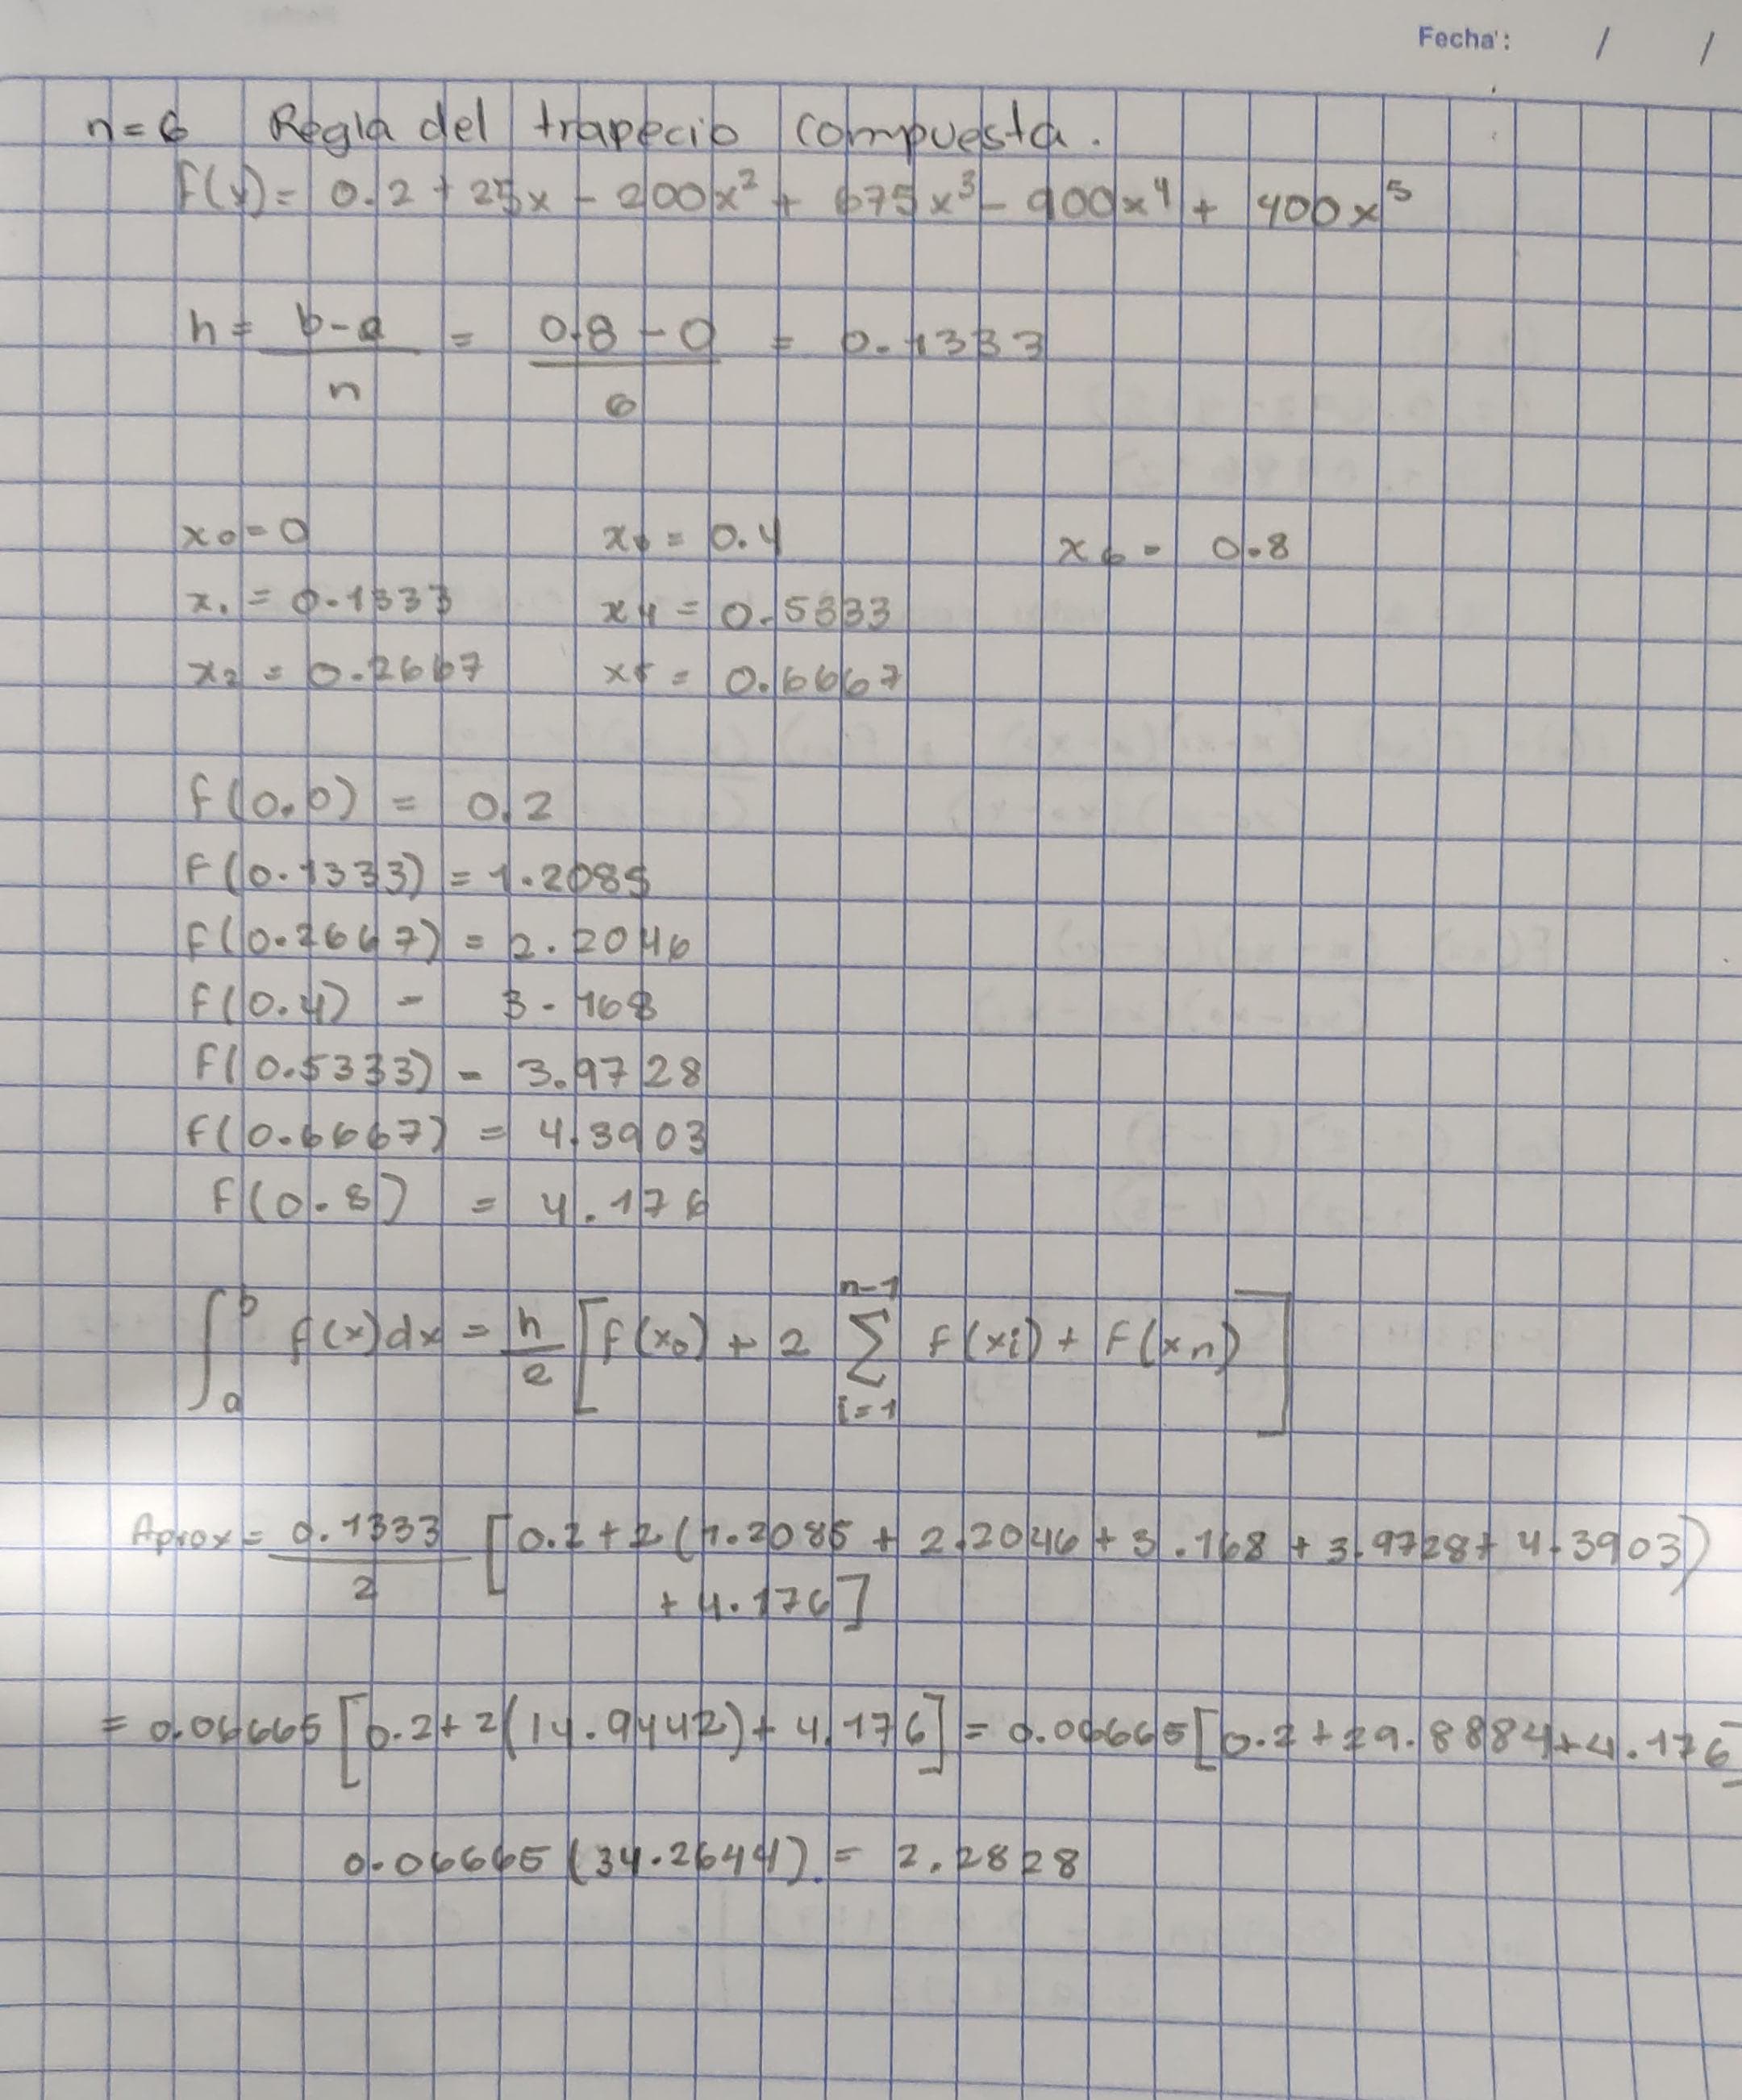 Fecha: / /
n=6 Regla del trapecio compuesta.
f(x)= 0.2 + 25x - 200x² + 675x³ - 900x⁴ + 400x⁵
h = b-a / n = 0.8 - 0 / 6 = 0.1333
x₀=0 x₃ = 0.4 x₆ = 0.8
x₁ = 0.1333 x₄ = 0.5333
x₂ = 0.2667 x₅ = 0.6667
f(0.0) = 0.2
f(0.1333) = 1.2085
f(0.2667) = 2.2046
f(0.4) = 3.168
f(0.5333) = 3.9728
f(0.6667) = 4.3903
f(0.8) = 4.176
∫ₐᵇ f(x)dx = h/2 [f(x₀) + 2 ∑ᵢ₌₁ⁿ⁻¹ f(xi) + f(xn)]
Aprox = 0.1333/2 [0.2+2(1.2085 + 2.2046 + 3.168 + 3.9728 + 4.3903)
+ 4.176]
= 0.06665 [0.2+2(14.9442)+4.176] = 0.06665[0.2+29.8884+4.176]
0.06665(34.2644) = 2.2828